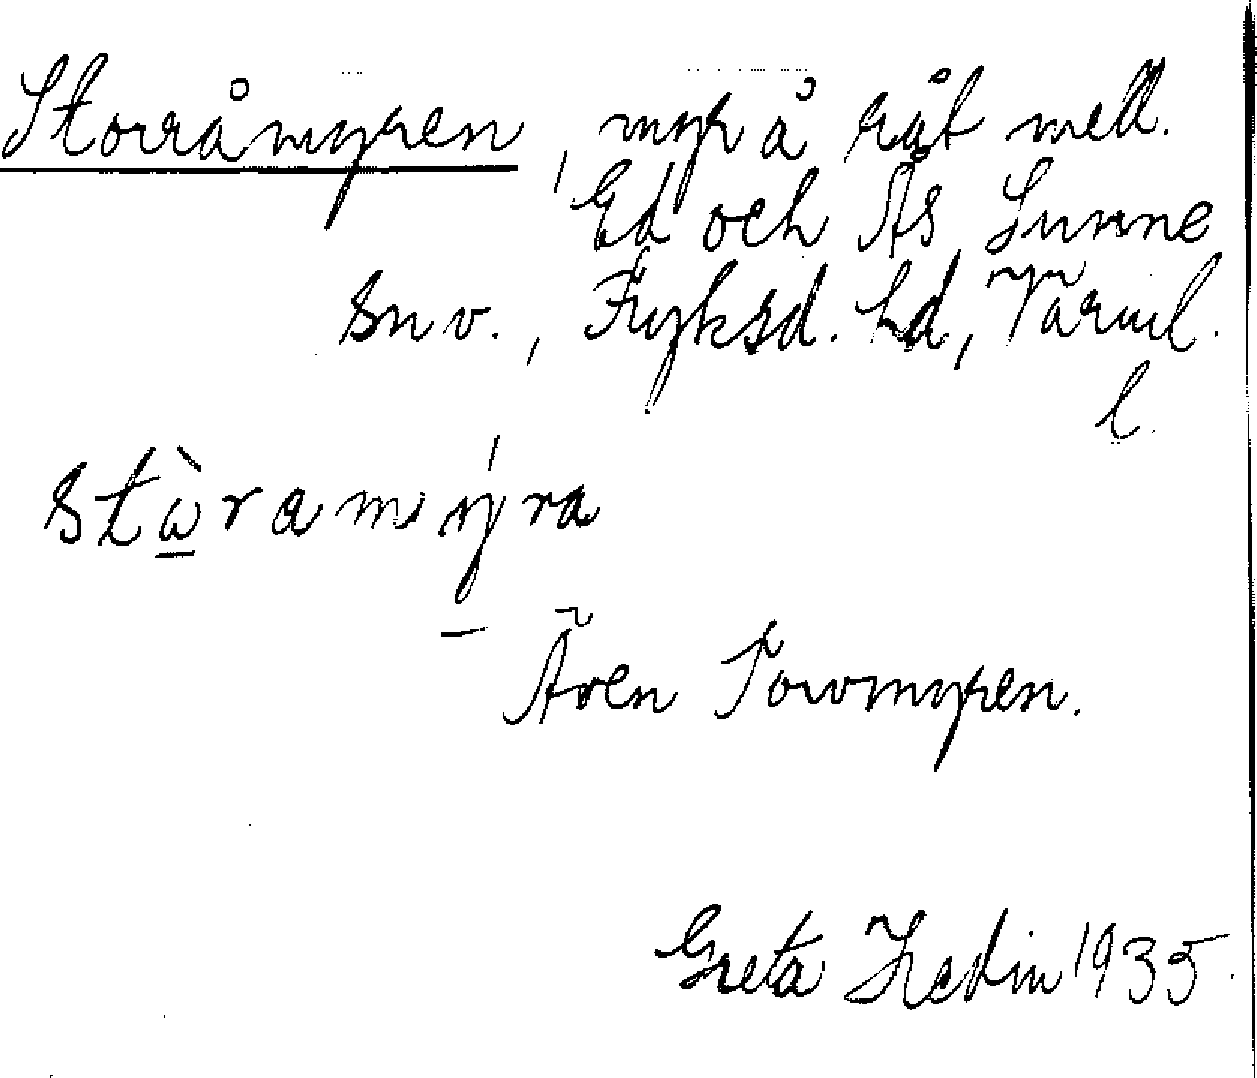 Storråmyren, myr å råt mell.
Ed och Ås, Sunne
sn v., Fryksd. hd, Värml.
l.
stὼramýra
Även Torvmyren.
Greta Hedin 1935.